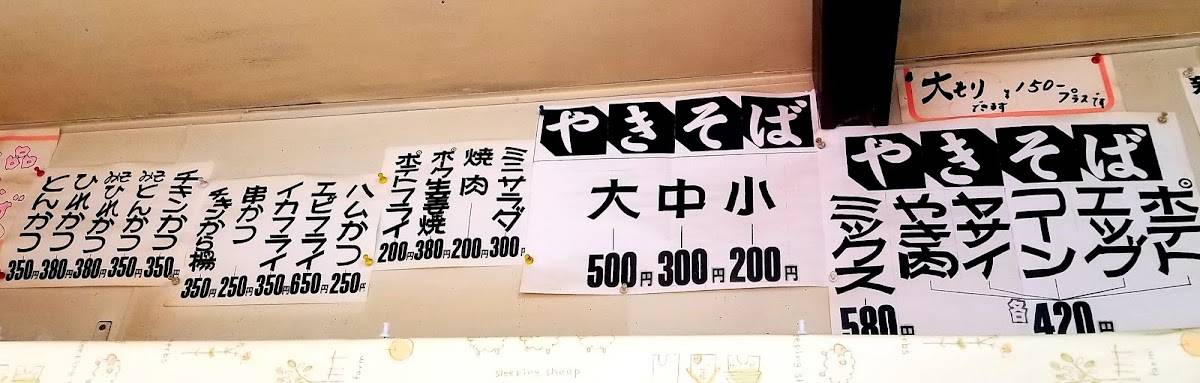 大もり
できます
¥150-
プラスです
やきそば
ポテト
エッグ
コーン
ヤサイ
やき肉
各420円
ミックス
580円
やきそば
小 200円
中 300円
大 500円
ミニサラダ 300円
焼肉 200円
ポーク生姜焼 380円
ポテトフライ 200円
ハムかつ 250円
エビフライ 650円
イカフライ 350円
串かつ 250円
チキンから揚 350円
チキンかつ 350円
みそとんかつ 350円
みそひれかつ 380円
ひれかつ 380円
とんかつ 350円
sleeping sheep
farm